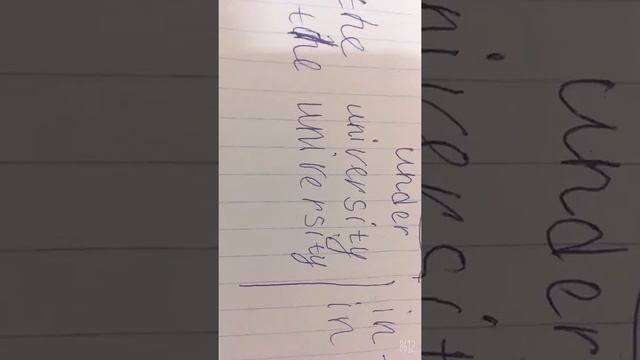 under
the university in
the university in
8612